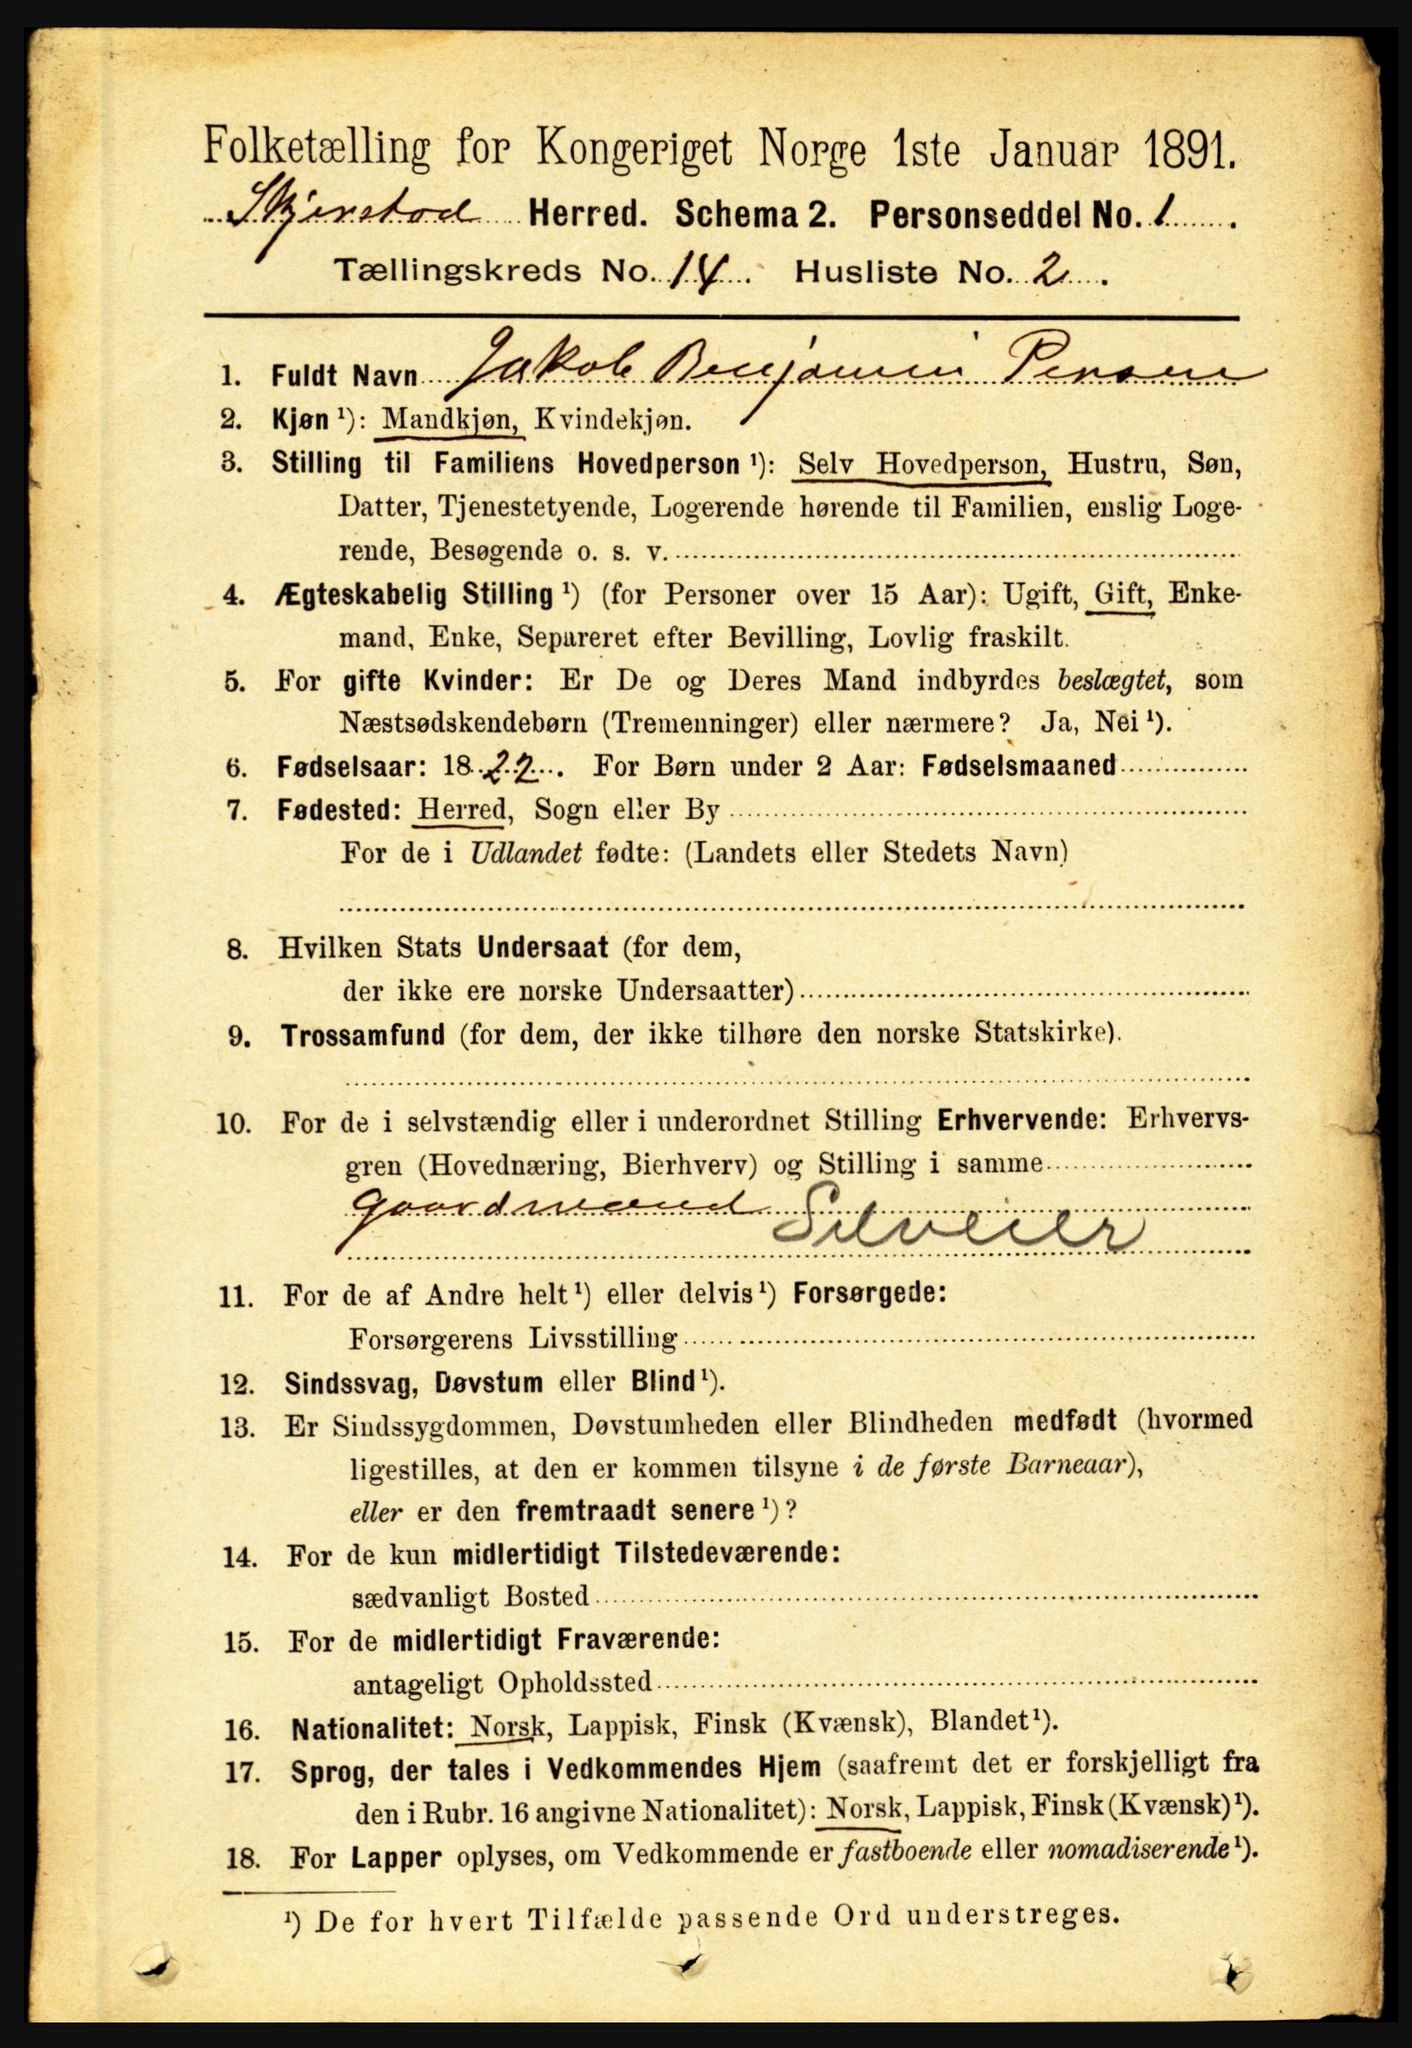 Folketælling for Kongeriget Norge 1ste Januar 1891.
Skjerstad Herred. Schema 2. Personseddel No. 1.
Tællingskreds No. 14. Husliste No. 2.
1. Fuldt Navn Jakob Benjamin Persen
2. Kjøn¹): Mandkjøn, Kvindekjøn.
3. Stilling til Familiens Hovedperson¹): Selv Hovedperson, Hustru, Søn,
Datter, Tjenestetyende, Logerende hørende til Familien, enslig Loge-
rende, Besøgende o. s. v.
4. Ægteskabelig Stilling¹) (for Personer over 15 Aar): Ugift, Gift, Enke-
mand, Enke, Separeret efter Bevilling, Lovlig fraskilt.
5. For gifte Kvinder: Er De og Deres Mand indbyrdes beslægtet, som
Næstsødskendebørn (Tremenninger) eller nærmere? Ja, Nei¹).
6. Fødselsaar: 1822. For Børn under 2 Aar: Fødselsmaaned
7. Fødested: Herred, Sogn eller By
For de i Udlandet fødte: (Landets eller Stedets Navn)
8. Hvilken Stats Undersaat (for dem,
der ikke ere norske Undersaatter)
9. Trossamfund (for dem, der ikke tilhøre den norske Statskirke).
10. For de i selvstændig eller i underordnet Stilling Erhvervende: Erhvervs-
gren (Hovednæring, Bierhverv) og Stilling i samme
gaardmand Selveier
11. For de af Andre helt¹) eller delvis¹) Forsørgede:
Forsørgerens Livsstilling
12. Sindssvag, Døvstum eller Blind¹).
13. Er Sindssygdommen, Døvstumheden eller Blindheden medfødt (hvormed
ligestilles, at den er kommen tilsyne i de første Barneaar),
eller er den fremtraadt senere¹)?
14. For de kun midlertidigt Tilstedeværende:
sædvanligt Bosted
15. For de midlertidigt Fraværende:
antageligt Opholdssted
16. Nationalitet: Norsk, Lappisk, Finsk (Kvænsk), Blandet¹).
17. Sprog, der tales i Vedkommendes Hjem (saafremt det er forskjelligt fra
den i Rubr. 16 angivne Nationalitet): Norsk, Lappisk, Finsk (Kvænsk)¹).
18. For Lapper oplyses, om Vedkommende er fastboende eller nomadiserende¹).
¹) De for hvert Tilfælde passende Ord understreges.